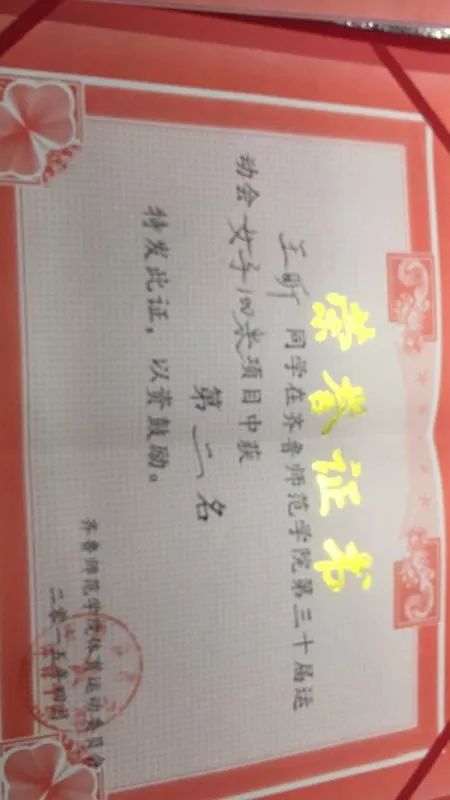 荣誉证书
王昕 同学在齐鲁师范学院第三十届运
动会 女子100米项目中获
第二名
特发此证，以资鼓励。
齐鲁师范学院体育运动委员会
二零一五年四月